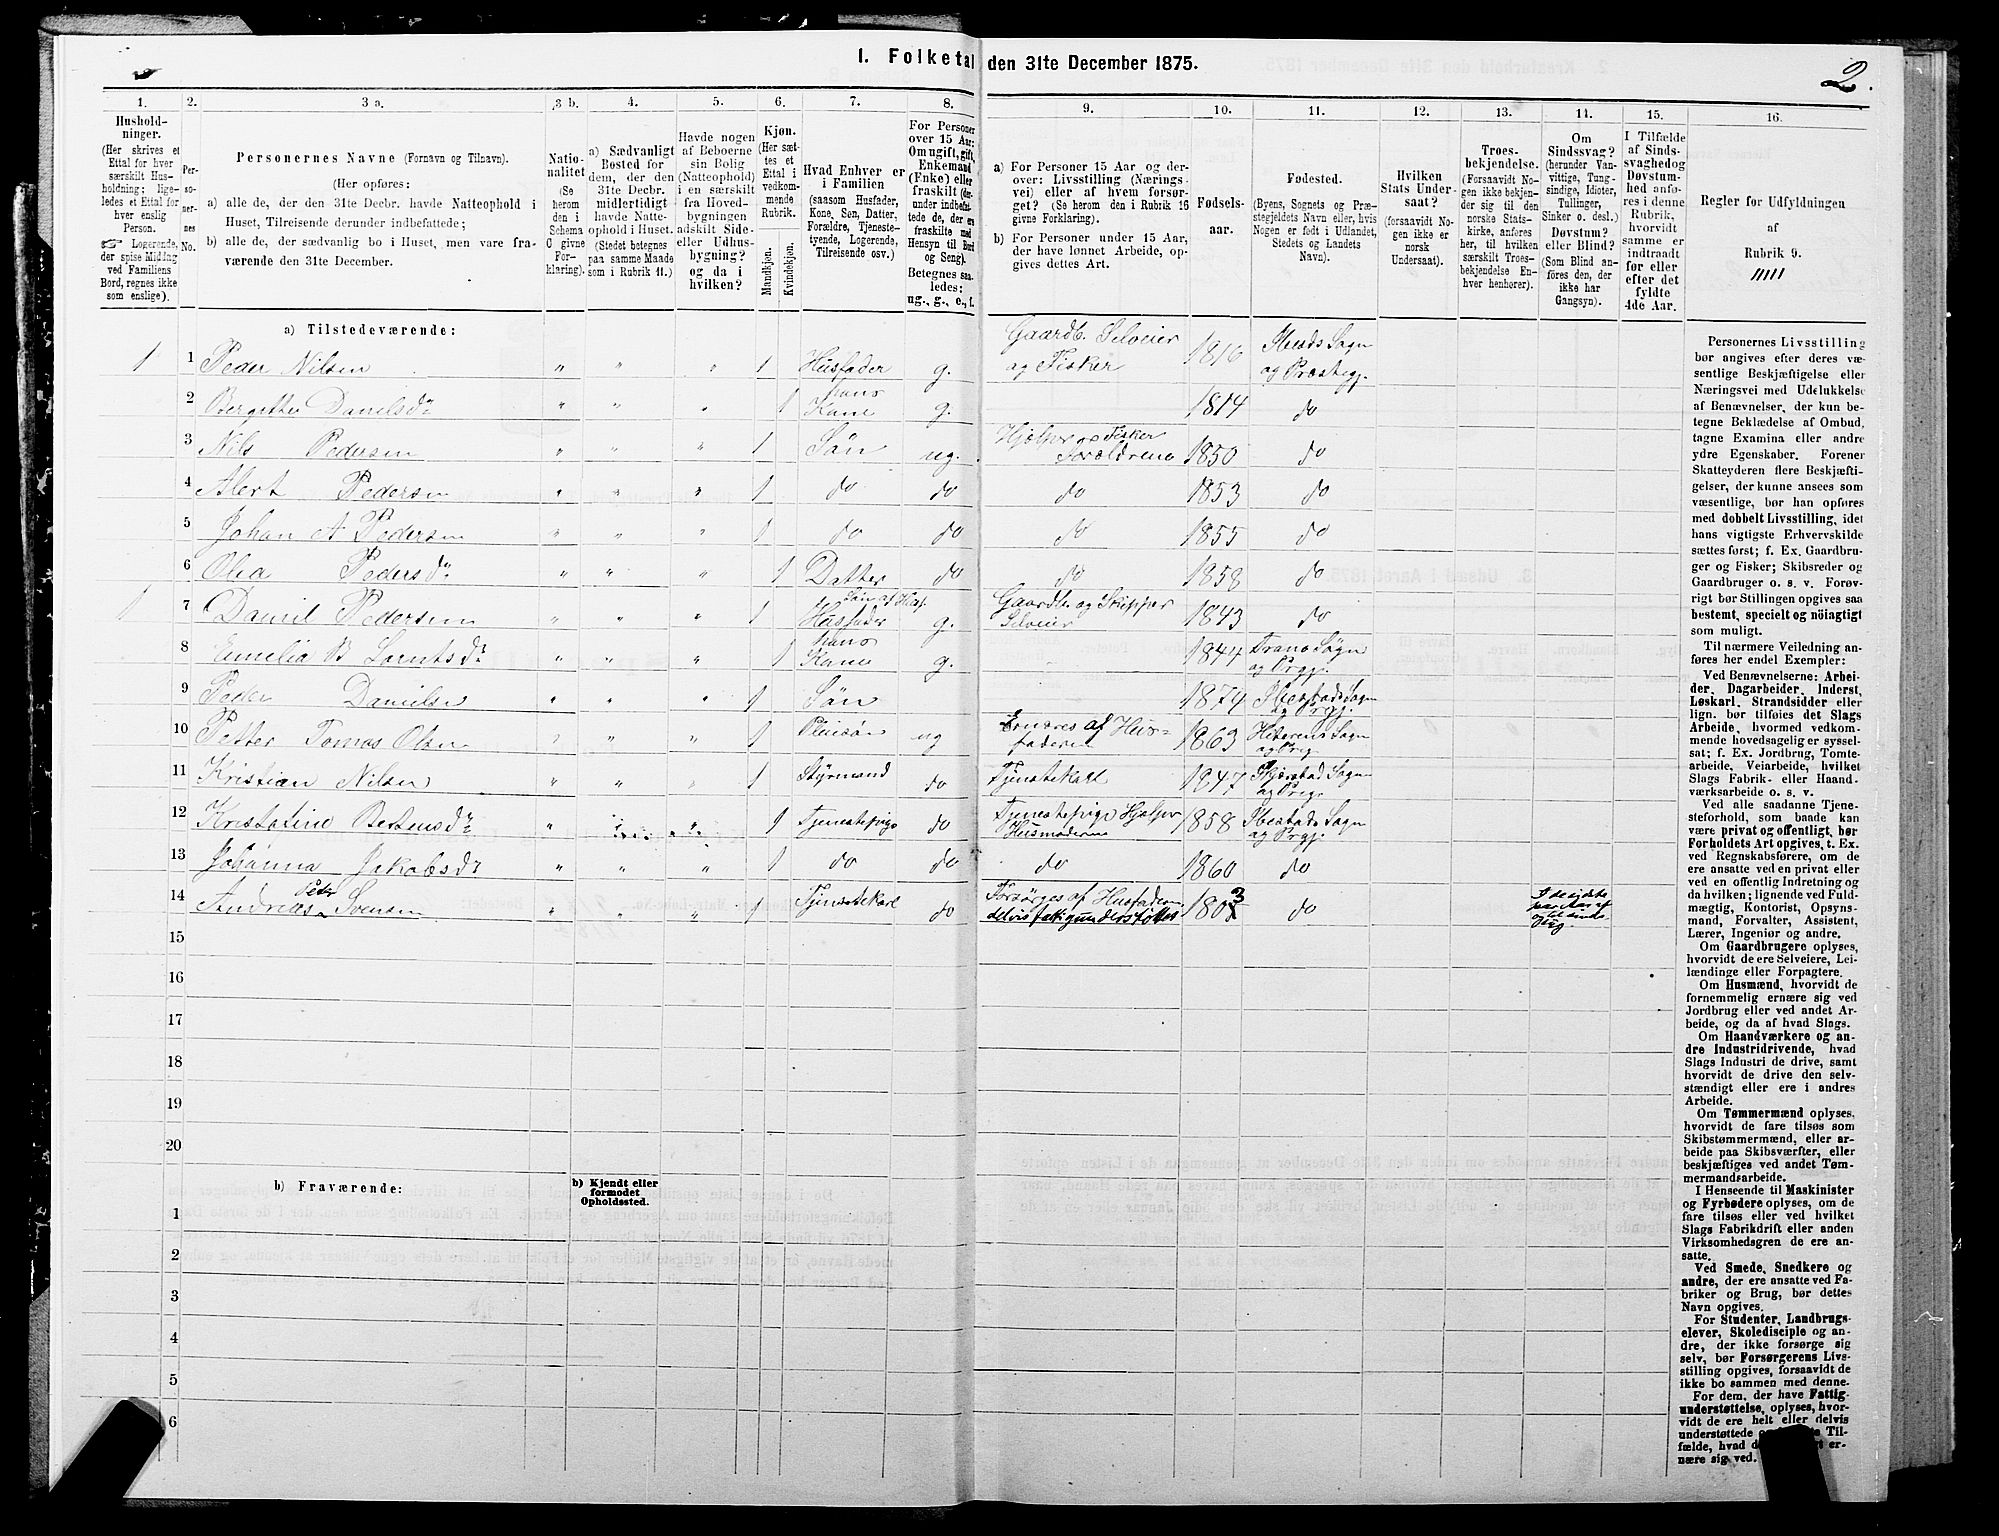 I. Folketal den 31te December 1875.
2.
1.
2.
3 a.
3 b.
4.
5.
6.
7.
8.
9.
10.
11.
12.
13.
14.
15.
16.
Hushold-
ninger.
(Her skrives et
Ettal for hver
særskilt Hus-
holdning; lige-
ledes et Ettal for
hver enslig
Person.
☞ Logerende,
der spise Middag
ved Familiens
Bord, regnes ikke
som enslige).
Per-
so-
ner-
nes
No.
Personernes Navne (Fornavn og Tilnavn).
(Her opføres:
a) alle de, der den 31te Decbr. havde Natteophold i
Huset, Tilreisende derunder indbefattede;
b) alle de, der sædvanlig bo i Huset, men vare fra-
værende den 31te December.
Natio-
nalitet
(Se
herom
den i
Schema
C givne
For-
klaring).
a) Sædvanligt
Bosted for
dem, der den
31te Decbr.
midlertidigt
havde Natte-
ophold i Huset.
(Stedet betegnes
paa samme Maade
som i Rubrik 11.)
Havde nogen
af Beboerne
sin Bolig
(Natteophold)
i en særskilt
fra Hoved-
bygningen
adskilt Side-
eller Udhus-
bygning?
og da i
hvilken?
Kjøn.
(Her sæt-
tes et
Ettal i
vedkom-
mende
Rubrik.
Mandkjøn.
Kvindekjøn.
Hvad Enhver er
i Familien
(saasom Husfader,
Kone, Søn, Datter,
Forældre, Tjeneste-
tyende, Logerende,
Tilreisende osv.)
For Personer
over 15 Aar:
Om ugift, gift,
Enkemand
(Enke) eller
fraskilt (der-
under indbefat-
tede de, der ere
fraskilte med
Hensyn til Bord
og Seng).
Betegnes saa-
ledes:
ug., g., e., f.
a) For Personer 15 Aar og der-
over: Livsstilling (Nærings-
vei) eller af hvem forsør-
get? (Se herom de i Rubrik 16
givne Forklaring).
b) For Personer under 15 Aar,
der have lønnet Arbeide, op-
gives dettes Art.
Fødsels-
aar.
Fødested.
(Byens, Sognets og Præ-
stegjeldets Navn eller, hvis
Nogen er født i Udlandet,
Stedets og Landets
Navn).
Hvilken
Stats Under-
saat?
(forsaavidt No-
gen ikke er
norsk
Undersaat).
Troes-
bekjendelse.
(Forsaavidt No-
gen ikke bekjen-
der sig til den
norske Stats-
kirke, anføres
her, til hvilken
særskilt Troes-
bekjendelse En-
hver henhører).
Om
Sindssvag?
(herunder Van-
vittige, Tung-
sindige, Idioter,
Tullinger,
Sinker o. desl.)
Døvstum?
eller Blind?
(Som Blind an-
føres den, der
ikke har
Gangsyn).
I Tilfælde
af Sinds-
svaghed og
Døvstum-
hed anfø-
res i denne
Rubrik,
hvorvidt
samme er
indtraadt
før eller
efter det
fyldte
4de Aar.
Regler for Udfyldningen
af
Rubrik 9.
a) Tilstedeværende:
1 1 Peder Nilsen " " " 1 Husfader g. Gaardb. Selveier og Fisker 1816 Ibestads Sogn og Præstegj.
2 Bergitte Danielsdr " " " 1 hans Kone g. 1814 do
3 Nils Pedersen " " " 1 Søn ug. Hjælper og Fisker Forældrene 1850 do
4 Alert Pedersen " " " 1 do do do 1853 do
5 Johan A Pedersen " " " 1 do do do 1855 do
6 Olea Pedersdr " " " 1 Datter do do 1858 do
1 7 Daniel Pedersen " " " 1 Søn af Husf. Husfader g. Gaardbr og Skipper Selveier 1843 do
8 Emelia B Lorntsdr " " " 1 hans Kone g. 1844 Tranø Sogn og Prgj.
9 Peder Danielsen " " " 1 Søn 1874 Ibestads Sogn og Prgj.
10 Petter Tomas Olsen " " " 1 Pleiesøn ug Ernæres af Hus-faderen 1863 Hiterens Sogn og Prg.
11 Kristian Nilsen " " " 1 Styrmand do Tjenestekarl 1847 Skjerstad Sogn og Prg.
12 Kristotine Bertensdr " " " 1 Tjenestepige do Tjenestepige Hjælper Husmoderen 1858 Ibestads Sogn og Prgj.
13 Johanna Jakobsdr " " " 1 do do do 1860 do
14 Andreas Peder Svensen " " " 1 Tjenestekarl do Forsørges af Husfaderen delvis fattigunderstøttet 1803 do
15
16
17
18
19
20
b) Fraværende:
b) Kjendt eller
formodet
Opholdssted.
1
2
3
4
5
6
Personernes Livsstilling
bør angives efter deres væ-
sentlige Beskjæftigelse eller
Næringsvei med Udelukkelse
af Benævnelser, der kun be-
tegne Beklædelse af Ombud,
tagne Examina eller andre
ydre Egenskaber. Forener
Skatteyderen flere Beskjæfti-
gelser, der kunne ansees som
væsentlige, bør han opføres
med dobbelt Livsstilling, idet
hans vigtigste Erhvervskilde
sættes først; f. Ex. Gaardbru-
ger og Fisker; Skibsreder og
Gaardbruger o. s. v. Forøv-
rigt bør Stillingen opgives saa
bestemt, specielt og nöiagtigt
som muligt.
Til nærmere Veiledning an-
føres her endel Exempler:
Ved Benævnelserne: Arbei-
der, Dagarbeider, Inderst,
Løskarl, Strandsidder eller
lign. bør tilføies det Slags
Arbeide, hvormed vedkom-
mende hovedsagelig er syssel-
sat; f. Ex. Jordbrug, Tomte-
arbeide, Veiarbeide, hvilket
Slags Fabrik- eller Haand-
værksarbeide o. s. v.
Ved alle saadanne Tjene-
steforhold, som baade kan
være privat og offentligt, bør
Forholdets Art opgives, t. Ex.
ved Regnskabsførere, om de
ere ansatte ved en privat eller
ved en offentlig Indretning og
da hvilken; lignende ved Fuld-
mægtig, Kontorist, Opsyns-
mand, Forvalter, Assistent,
Lærer, Ingeniør og andre.
Om Gaardbrugere oplyses,
hvorvidt de ere Selveiere, Lei-
lændinge eller Forpagtere.
Om Husmænd, hvorvidt de
fornemmelig ernære sig ved
Jordbrug eller ved andet Ar-
beide, og da af hvad Slags.
Om Haandværkere og an-
dre Industridrivende, hvad
Slags Industri de drive, samt
hvorvidt de drive den selv-
stændigt eller ere i andres
Arbeide.
Om Tømmermænd oplyses,
hvorvidt de fare tilsøs som
Skibstømmermænd, eller ar-
beide paa Skibsværfter, eller
beskjæftiges ved andet Tøm-
mermandsarbeide.
I Henseende til Maskinister
og Fyrbødere oplyses, om de
fare tilsøs eller ved hvilket
Slags Fabrikdrift eller anden
Virksomhedsgren de ere an-
satte.
Ved Smede, Snedkere og
andre, der ere ansatte ved Fa-
briker og Brug, bør dettes
Navn opgives.
For Studenter, Landbrugs-
elever, Skoledisciple og an-
dre, der ikke forsørge sig
selv, bør Forsørgerens Livs-
stilling opgives, forsaavidt de
ikke bo sammen med denne.
For dem, der have Fattig-
understøttelse, oplyses, hvor-
vidt de ere helt eller delvis
understøttede Til-
fælde, hvad er-
nære sig ved.